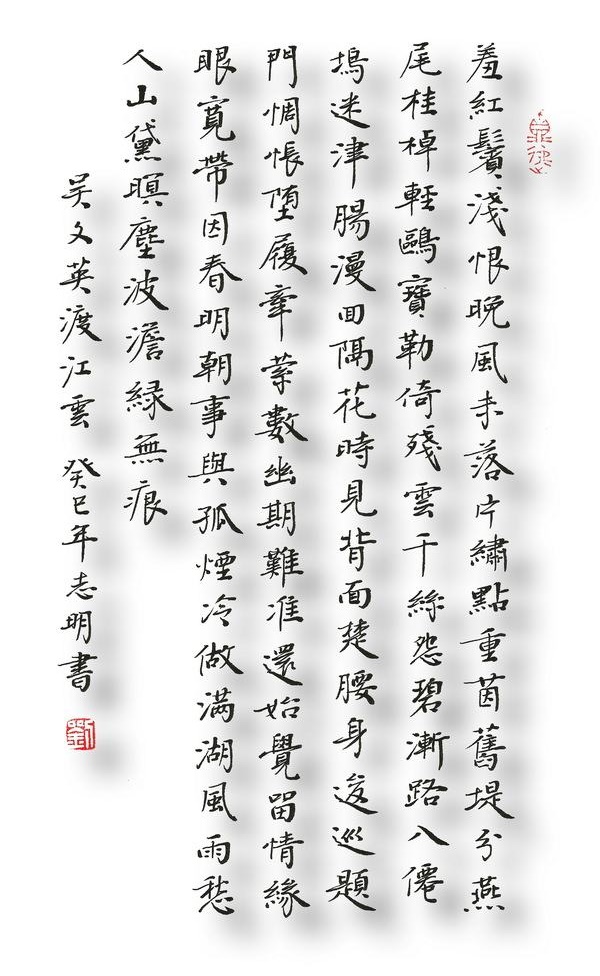 羞紅鬢淺恨晚風未落片繡點重茵舊堤分燕
尾桂棹輕鷗寶勒倚殘雲千絲怨碧漸路入僊
塢迷津腸漫回隔花時見背面楚腰身逡巡題
門惆悵堕履牽縈數幽期難准還始覺留情緣
眼寬帶因春明朝事與孤煙冷做滿湖風雨愁
人山黛暝塵波澹緑無痕
吳文英渡江雲 癸巳年志明書
劉